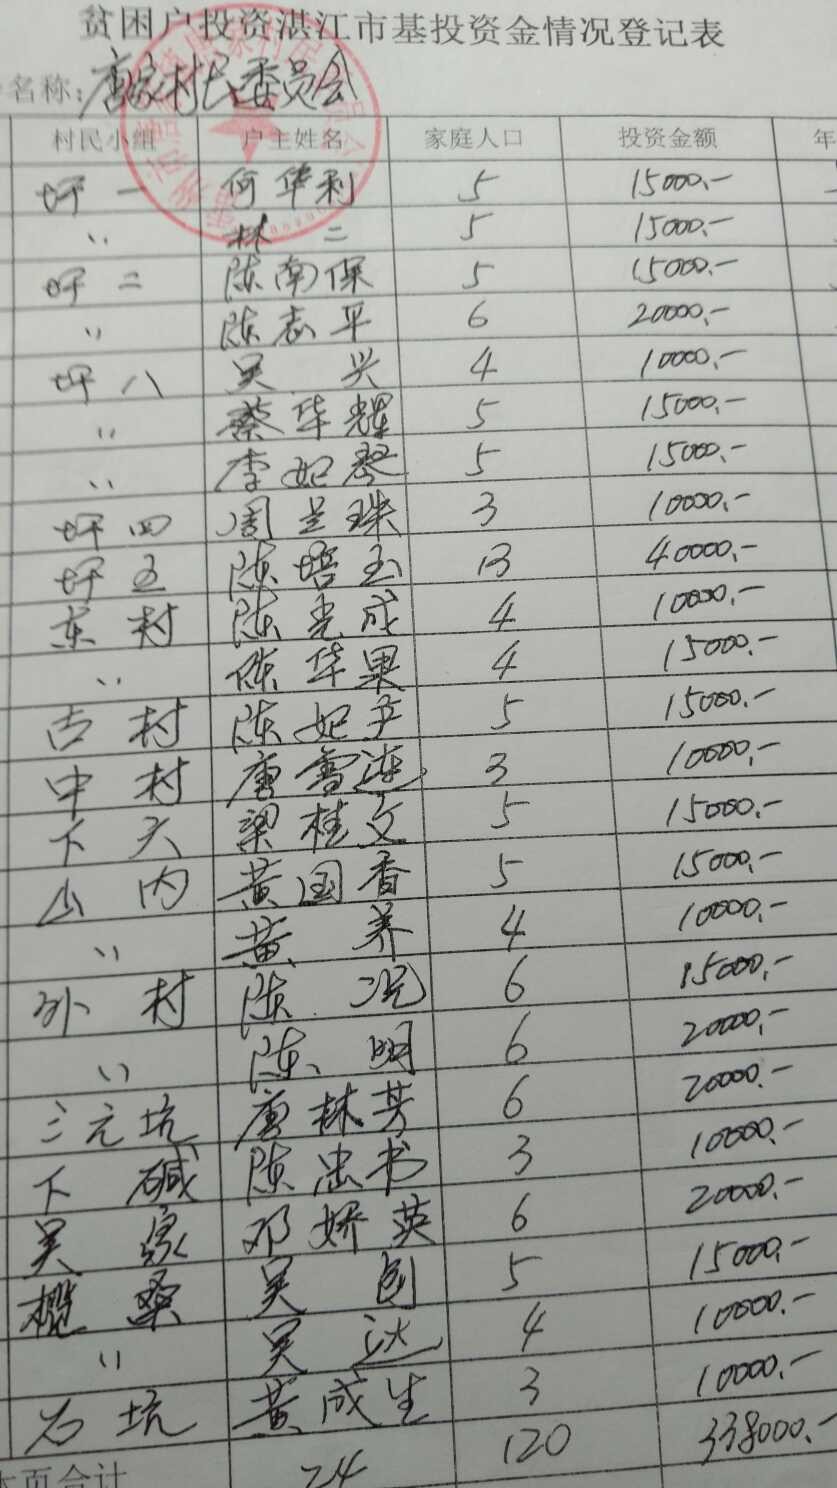 贫困户投资湛江市基投资金情况登记表
名称: 唐家村民委员会
村民小组 户主姓名 家庭人口 投资金额 年
坪一 何华利 5 15000.-
〃 林二 5 15000.-
坪二 陈南保 5 15000.-
〃 陈志平 6 20000.-
坪八 吴兴 4 10000.-
〃 蔡华辉 5 15000.-
〃 李妃琴 5 15000.-
坪四 周兰珠 3 10000.-
坪五 陈培玉 13 40000.-
东村 陈光成 4 10000.-
〃 陈华果 4 15000.-
古村 陈妃尹 5 15000.-
中村 唐雪连 3 10000.-
下六 梁桂文 5 15000.-
山内 黄国香 5 15000.-
〃 黄养 4 10000.-
外村 陈况 6 15000.-
〃 陈明 6 20000.-
三元坑 唐林芳 6 20000.-
下碱 陈忠书 3 10000.-
吴家 邓娇英 6 20000.-
榄桑 吴创 5 15000.-
〃 吴达 4 10000.-
石坑 黄成生 3 10000.-
本页合计 24 120 338000.-